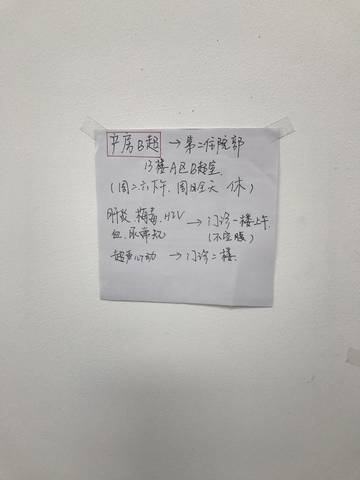 产房B超 → 第二住院部
13楼A区B超室.
(周二.六下午. 周日全天 休)
肝炎. 梅毒. HIV → 门诊一楼上午.
血. 尿常规 (不空腹)
超声心动 → 门诊二楼.